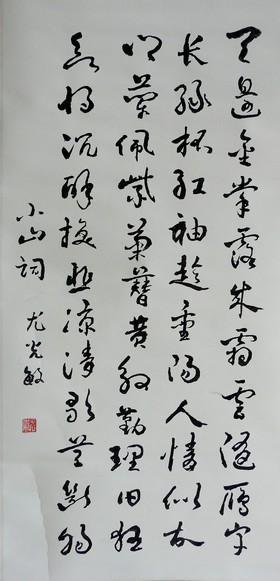 天邊金掌露成霜雲隨雁字
长绿杯红袖趁重陽人情似故
乡蘭佩紫菊簪黄殷勤理旧狂
欲将沉醉换悲凉清歌莫断肠
小山词 尤光敏